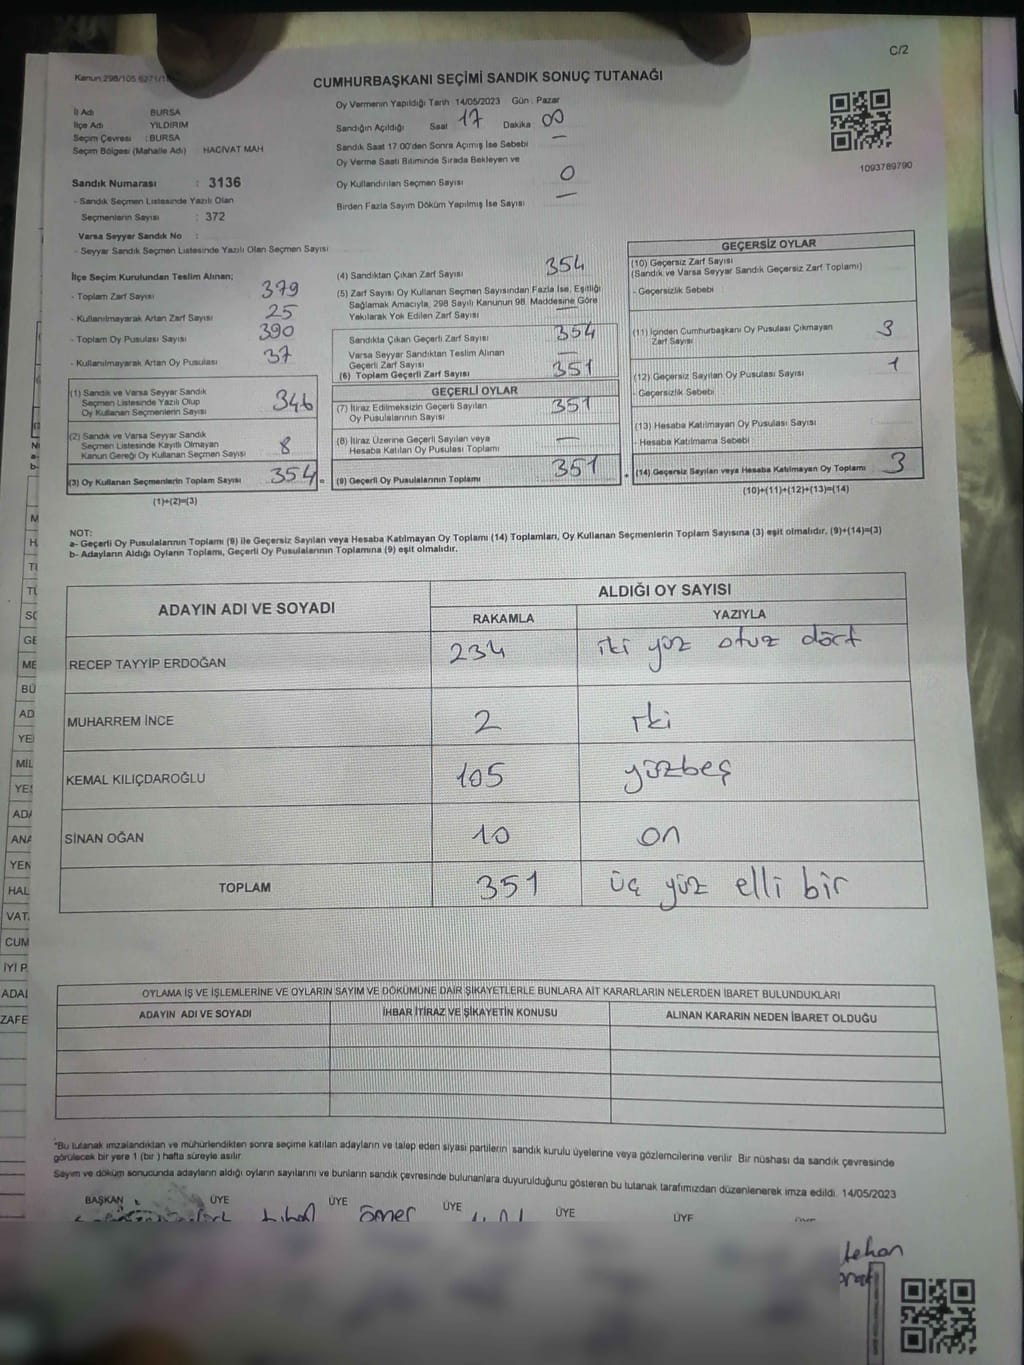 C/2
Kanun:298/105 6271/1
CUMHURBAŞKANI SEÇİMİ SANDIK SONUÇ TUTANAĞI
İl Adı BURSA
İlçe Adı YILDIRIM
Seçim Çevresi : BURSA
Seçim Bölgesi (Mahalle Adı) HACİVAT MAH
Oy Vermenin Yapıldığı Tarih 14/05/2023 Gün : Pazar
Sandığın Açıldığı Saat 17 Dakika 00
Sandık Saat 17:00'den Sonra Açımış İse Sebebi —
Oy Verme Saati Bitiminde Sırada Bekleyen ve
Oy Kullandırılan Seçmen Sayısı 0
Birden Fazla Sayım Döküm Yapılmış İse Sayısı —
1093789790
Sandık Numarası : 3136
- Sandık Seçmen Listesinde Yazılı Olan
Seçmenlerin Sayısı : 372
Varsa Seyyar Sandık No :
- Seyyar Sandık Seçmen Listesinde Yazılı Olan Seçmen Sayısı
İlçe Seçim Kurulundan Teslim Alınan;
- Toplam Zarf Sayısı 379
- Kullanılmayarak Artan Zarf Sayısı 25
- Toplam Oy Pusulası Sayısı 390
- Kullanılmayarak Artan Oy Pusulası 37
(1) Sandık ve Varsa Seyyar Sandık
Seçmen Listesinde Yazılı Olup
Oy Kullanan Seçmenlerin Sayısı 346
(2) Sandık ve Varsa Seyyar Sandık
Seçmen Listesinde Kayıtlı Olmayan
Kanun Gereği Oy Kullanan Seçmen Sayısı 8
(3) Oy Kullanan Seçmenlerin Toplam Sayısı 354 =
(1)+(2)=(3)
(4) Sandıktan Çıkan Zarf Sayısı 354
(5) Zarf Sayısı Oy Kullanan Seçmen Sayısından Fazla İse, Eşitliği
Sağlamak Amacıyla, 298 Sayılı Kanunun 98. Maddesine Göre
Yakılarak Yok Edilen Zarf Sayısı —
Sandıkta Çıkan Geçerli Zarf Sayısı 354
Varsa Seyyar Sandıktan Teslim Alınan
Geçerli Zarf Sayısı —
(6) Toplam Geçerli Zarf Sayısı 351
GEÇERLİ OYLAR
(7) İtiraz Edilmeksizin Geçerli Sayılan
Oy Pusulalarının Sayısı 351
(8) İtiraz Üzerine Geçerli Sayılan veya
Hesaba Katılan Oy Pusulası Toplamı —
(9) Geçerli Oy Pusulalarının Toplamı 351 +
GEÇERSİZ OYLAR
(10) Geçersiz Zarf Sayısı
(Sandık ve Varsa Seyyar Sandık Geçersiz Zarf Toplamı)
- Geçersizlik Sebebi :
(11) İçinden Cumhurbaşkanı Oy Pusulası Çıkmayan
Zarf Sayısı 3
(12) Geçersiz Sayılan Oy Pusulası Sayısı 1
- Geçersizlik Sebebi
(13) Hesaba Katılmayan Oy Pusulası Sayısı
- Hesaba Katılmama Sebebi
(14) Geçersiz Sayılan veya Hesaba Katılmayan Oy Toplamı 3
(10)+(11)+(12)+(13)=(14)
NOT:
a- Geçerli Oy Pusulalarının Toplamı (9) ile Geçersiz Sayılan veya Hesaba Katılmayan Oy Toplamı (14) Toplamları, Oy Kullanan Seçmenlerin Toplam Sayısına (3) eşit olmalıdır. (9)+(14)=(3)
b- Adayların Aldığı Oyların Toplamı, Geçerli Oy Pusulalarının Toplamına (9) eşit olmalıdır.
ADAYIN ADI VE SOYADI
ALDIĞI OY SAYISI
RAKAMLA YAZIYLA
RECEP TAYYİP ERDOĞAN 234 iki yüz otuz dört
MUHARREM İNCE 2 iki
KEMAL KILIÇDAROĞLU 105 yüzbeş
SİNAN OĞAN 10 on
TOPLAM 351 üç yüz elli bir
OYLAMA İŞ VE İŞLEMLERİNE VE OYLARIN SAYIM VE DÖKÜMÜNE DAİR ŞİKAYETLERLE BUNLARA AİT KARARLARIN NELERDEN İBARET BULUNDUKLARI
ADAYIN ADI VE SOYADI İHBAR İTİRAZ VE ŞİKAYETİN KONUSU ALINAN KARARIN NEDEN İBARET OLDUĞU
*Bu tutanak imzalandıktan ve mühürlendikten sonra seçime katılan adayların ve talep eden siyasi partilerin sandık kurulu üyelerine veya gözlemcilerine verilir. Bir nüshası da sandık çevresinde
görülecek bir yere 1 (bir ) hafta süreyle asılır
Sayım ve döküm sonucunda adayların aldığı oyların sayılarını ve bunların sandık çevresinde bulunanlara duyurulduğunu gösteren bu tutanak tarafımızdan düzenlenerek imza edildi. 14/05/2023
BAŞKAN ÜYE ÜYE ÜYE ÜYE ÜYE
ömer